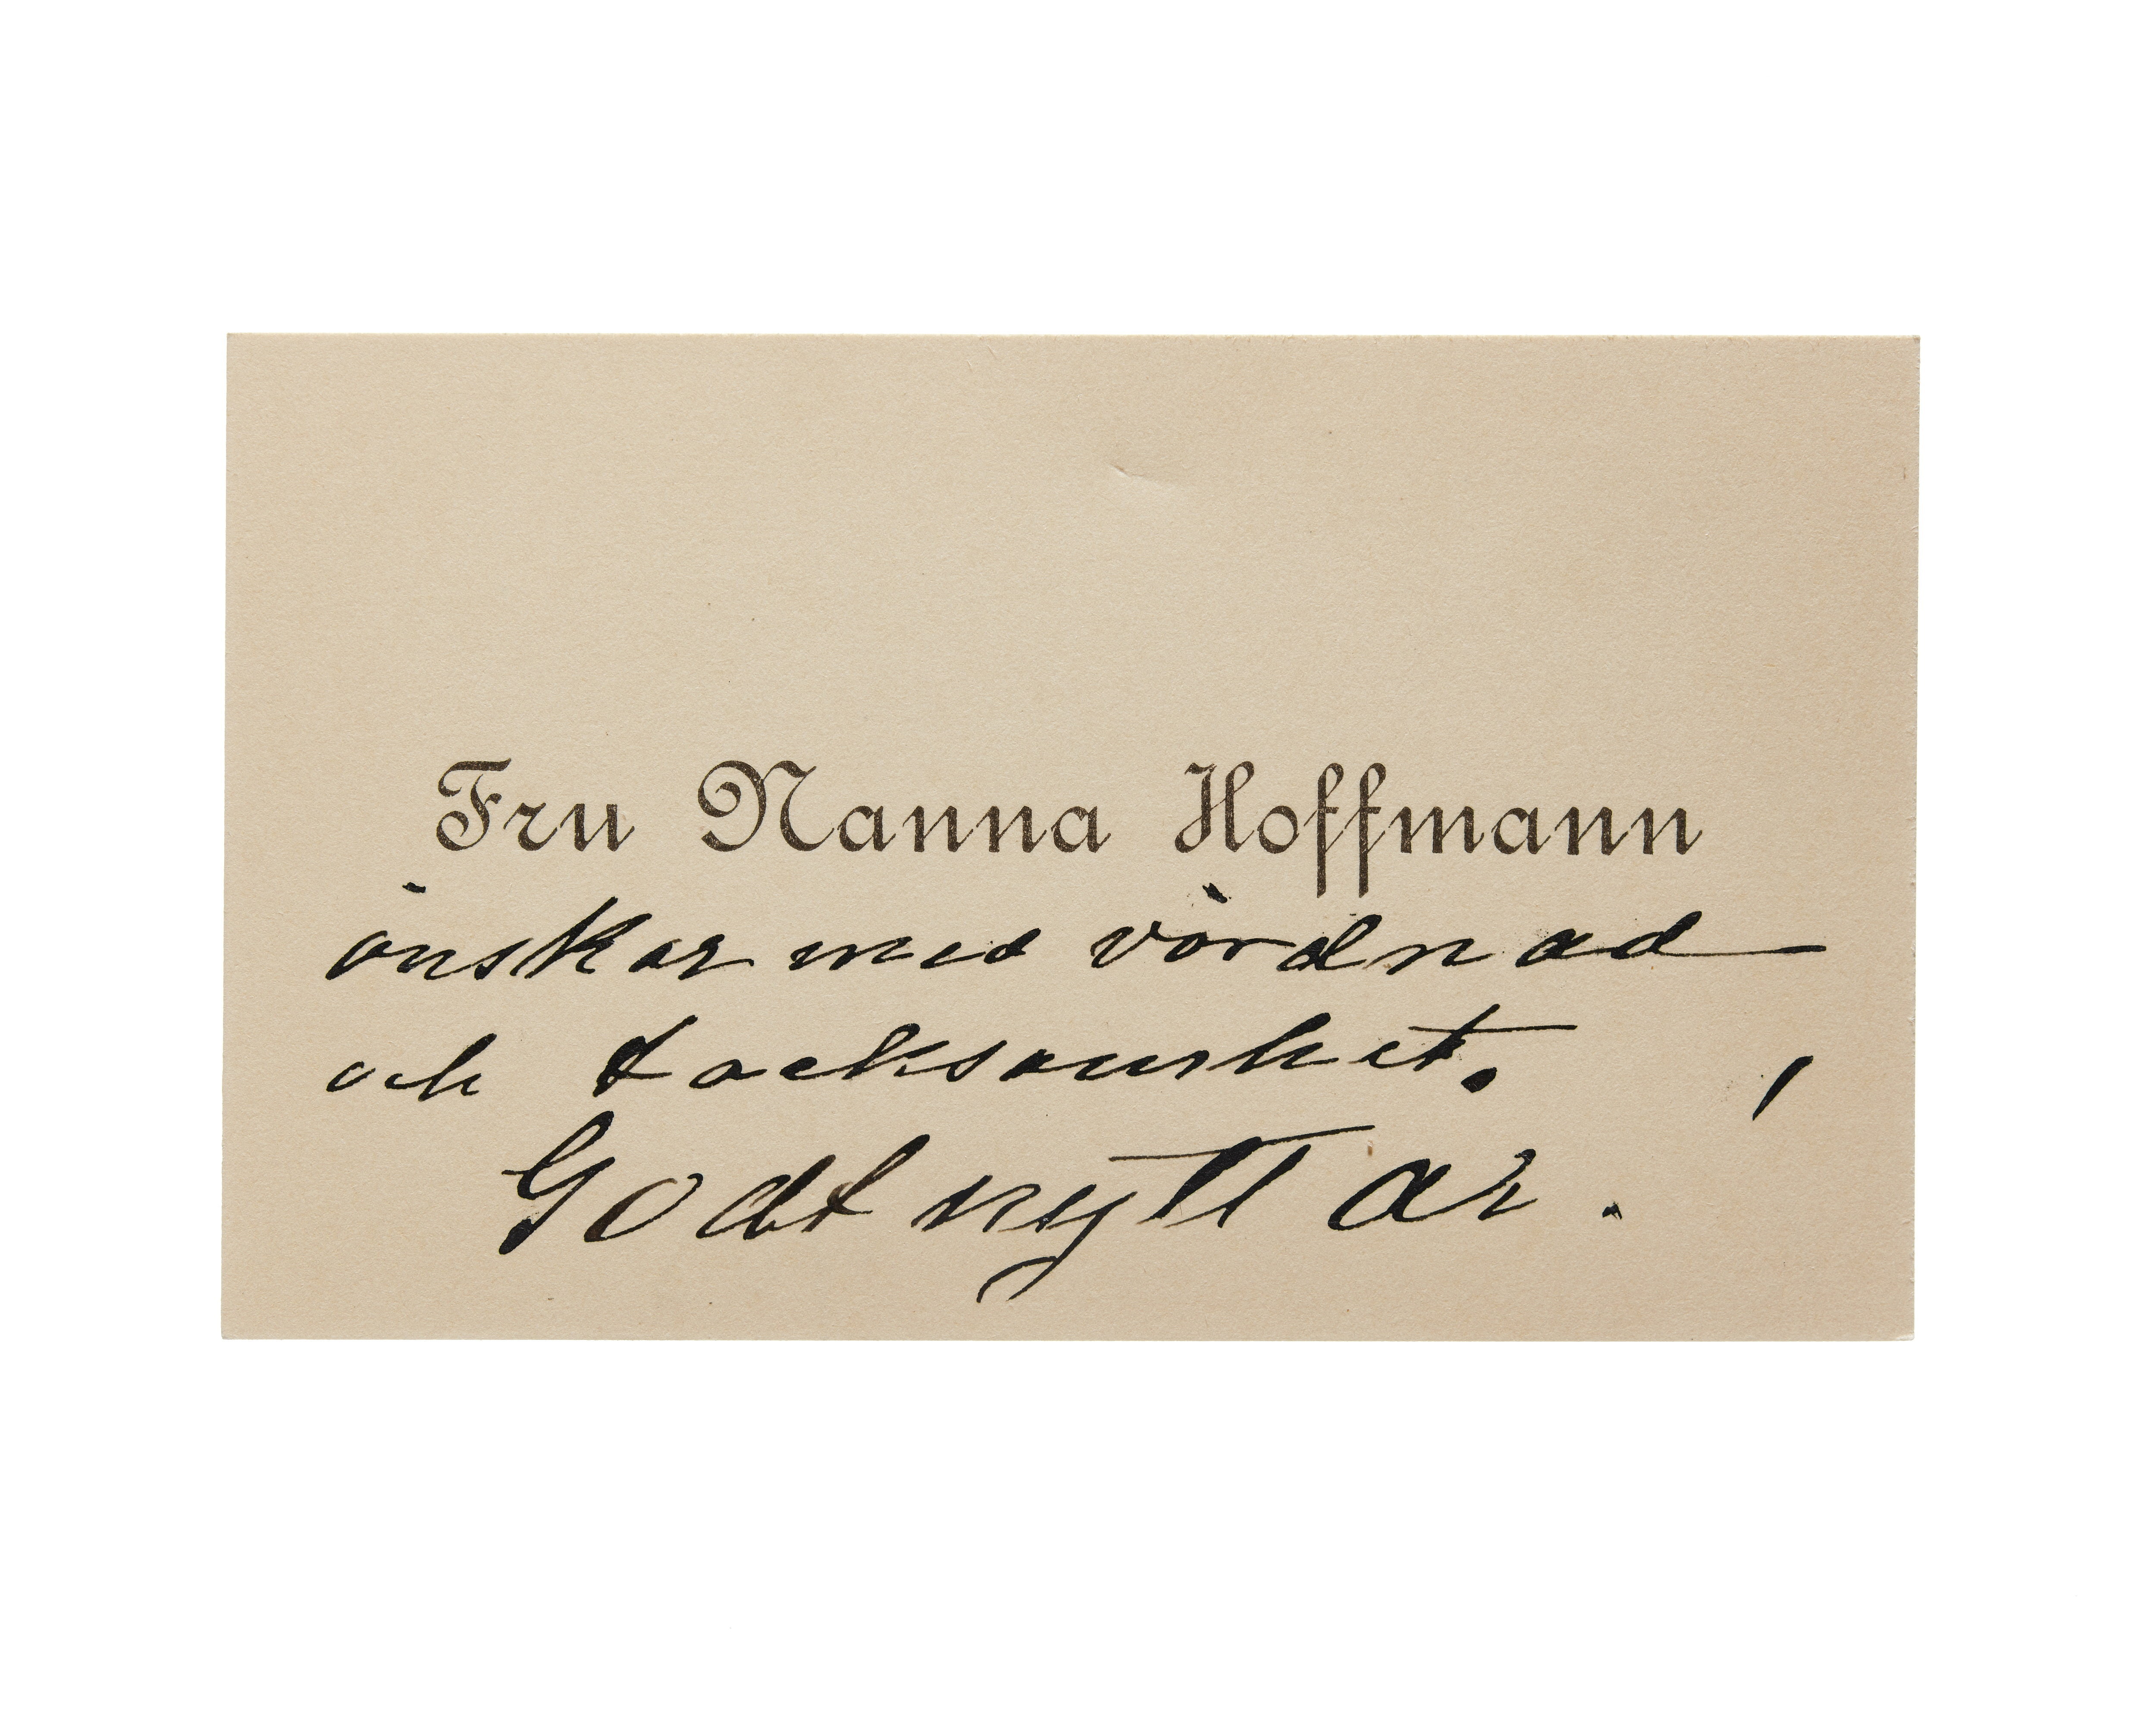 Fru Nanna Hoffmann
önskar med vördnad
och tacksamhet.
Godt nytt år!